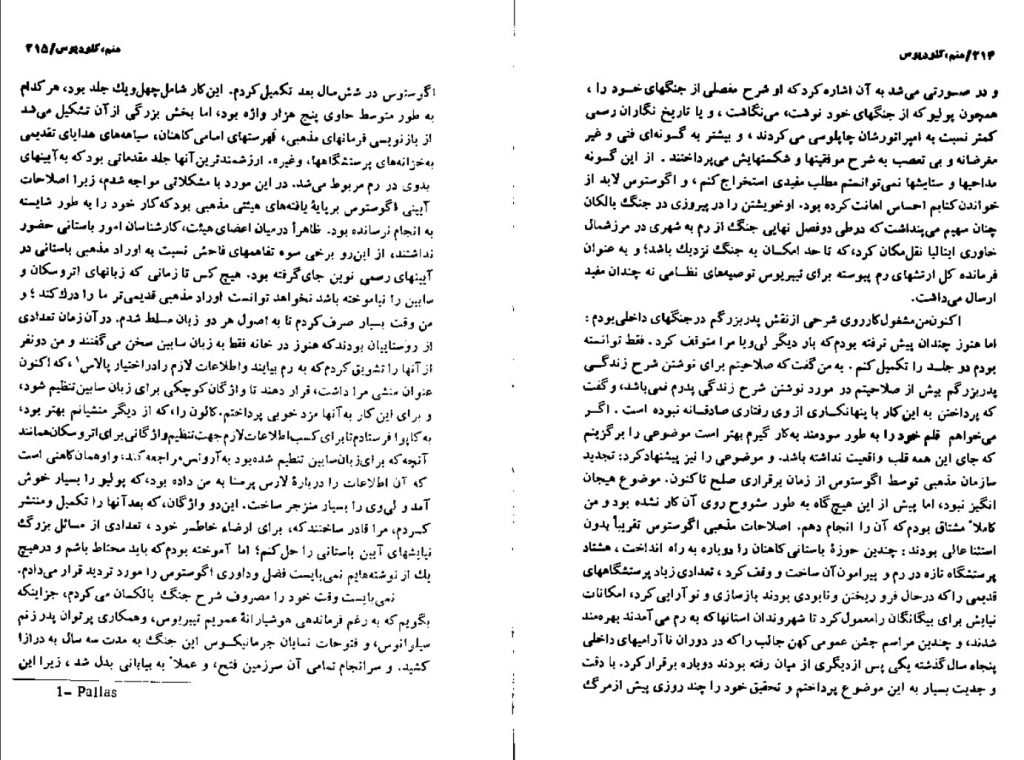 ۲۱۴/منم، کلودیوس
و در صورتی می‌شد به آن اشاره کرد که او شرح مفصلی از جنگهای خود را ،
همچون پولیو که از جنگهای خود نوشت، می‌نگاشت ، و یا تاریخ نگاران رسمی
کمتر نسبت به امپراتورشان چاپلوسی می‌کردند ، و بیشتر به گونه‌ای فنی و غیر
مغرضانه و بی تعصب به شرح موفقیتها و شکستهایش می‌پرداختند . از این گونه
مداحیها و ستایشها نمی‌توانستم مطلب مفیدی استخراج کنم ، و اگوستوس لابد از
خواندن کتابم احساس اهانت کرده بود. او خویشتن را در پیروزی در جنگ بالکان
چنان سهیم می‌پنداشت که در طی دو فصل نهایی جنگ از رم به شهری در مرز شمال
خاوری ایتالیا نقل مکان کرد، که تا حد امکان به جنگ نزدیک باشد؛ و به عنوان
فرمانده کل ارتشهای رم پیوسته برای تیبریوس توصیه‌های نظامی نه چندان مفید
ارسال می‌داشت.
اکنون من مشغول کار روی شرحی از نقش پدربزرگم در جنگهای داخلی بودم :
اما هنوز چندان پیش نرفته بودم که بار دیگر لی‌ویا مرا متوقف کرد . فقط توانسته
بودم دو جلد را تکمیل کنم . به من گفت که صلاحیتم برای نوشتن شرح زندگی
پدربزرگم بیش از صلاحیتم در مورد نوشتن شرح زندگی پدرم نمی‌باشد، و گفت
که پرداختن به این کار با پنهانکاری از وی رفتاری صادقانه نبوده است . اگر
می‌خواهم قلم خود را به طور سودمند به کار گیرم بهتر است موضوعی را برگزینم
که جای این همه قلب واقعیت نداشته باشد. و موضوعی را نیز پیشنهاد کرد: تجدید
سازمان مذهبی توسط اگوستوس از زمان برقراری صلح تاکنون. موضوع هیجان
انگیز نبود، اما پیش از این هیچ‌گاه به طور مشروح روی آن کار نشده بود و من
کاملاً مشتاق بودم که آن را انجام دهم. اصلاحات مذهبی اگوستوس تقریباً بدون
استثنا عالی بودند : چندین حوزهٔ باستانی کاهنان را دوباره به راه انداخت ، هشتاد
پرستشگاه تازه در رم و پیرامون آن ساخت و وقف کرد ، تعدادی زیاد پرستشگاههای
قدیمی را که در حال فرو ریختن و نابودی بودند بازسازی و نوآرایی کرد، امکانات
نیایش برای بیگانگان را معمول کرد تا شهروندان استانها که به رم می‌آمدند بهره‌مند
شدند، و چندین مراسم جشن عمومی کهن جالب را که در دوران ناآرامیهای داخلی
پنجاه سال گذشته یکی پس از دیگری از میان رفته بودند دوباره برقرار کرد. با دقت
و جدیت بسیار به این موضوع پرداختم و تحقیق خود را چند روزی پیش از مرگ
منم، کلودیوس/۲۱۵
اگوستوس در شش سال بعد تکمیل کردم. این کار شامل چهل و یک جلد بود، هر کدام
به طور متوسط حاوی پنج هزار واژه بود، اما بخش بزرگی از آن تشکیل می‌شد
از بازنویسی فرمانهای مذهبی، فهرستهای اسامی کاهنان، سیاهه‌های هدایای تقدیمی
به خزانه‌های پرستشگاهها، وغیره. ارزشمندترین آنها جلد مقدماتی بود که به آیینهای
بدوی در رم مربوط می‌شد. در این مورد با مشکلاتی مواجه شدم، زیرا اصلاحات
آیینی اگوستوس بر پایهٔ یافته‌های هیئتی مذهبی بود که کار خود را به طور شایسته
به انجام نرسانده بود. ظاهراً در میان اعضای هیئت، کارشناسان امور باستانی حضور
نداشتند، از این‌رو برخی سوء تفاهمهای فاحش نسبت به اوراد مذهبی باستانی در
آیینهای رسمی نوین جای گرفته بود. هیچ کس تا زمانی که زبانهای اتروسکان و
سابین را نیاموخته باشد نخواهد توانست اوراد مذهبی قدیمی‌تر ما را درک کند ؛ و
من وقت بسیار صرف کردم تا به اصول هر دو زبان مسلط شدم. در آن زمان تعدادی
از روستاییان بودند که هنوز در خانه فقط به زبان سابین سخن می‌گفتند و من دو نفر
از آنها را تشویق کردم که به رم بیایند و اطلاعات لازم را در اختیار پالاس۱، که اکنون
عنوان منشی مرا داشت، قرار دهند تا واژگان کوچکی برای زبان سابین تنظیم شود،
و برای این کار به آنها مزد خوبی پرداختم. کالون را، که از دیگر منشیانم بهتر بود،
به کاپوا فرستادم تا برای کسب اطلاعات لازم جهت تنظیم واژگانی برای اتروسکان همانند
آنچه که برای زبان سابین تنظیم شده بود به آرونس مراجعه کند، و او همان کاهنی است
که آن اطلاعات را دربارهٔ لارس پرسنا به من داده بود، که پولیو را بسیار خوش
آمد و لی‌وی را بسیار منزجر ساخت. این دو واژگان، که بعد آنها را تکمیل و منتشر
کردم، مرا قادر ساختند که، برای ارضاء خاطر خود ، تعدادی از مسائل بزرگ
نیایشهای آیین باستانی را حل کنم؛ اما آموخته بودم که باید محتاط باشم و در هیچ
یک از نوشته‌هایم نمی‌بایست فضل و داوری اگوستوس را مورد تردید قرار می‌دادم.
نمی‌بایست وقت خود را مصروف شرح جنگ بالکان می‌کردم، جز اینکه
بگویم که به رغم فرماندهی هوشیارانهٔ عمویم تیبریوس، و همکاری پرتوان پدر زنم
سیلوانوس، و فتوحات نمایان جرمانیکوس این جنگ به مدت سه سال به درازا
کشید. و سرانجام تمامی آن سرزمین فتح، و عملاً به بیابانی بدل شد ، زیرا این
1- Pallas